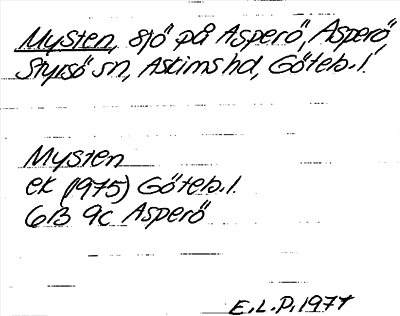 Mysten, sjö på Asperö, Asperö,
Styrsö sn, Askims hd, Göteb. l.
Mysten
ek (1975) Göteb. l.
6B 9c Asperö
E.L.P. 1977